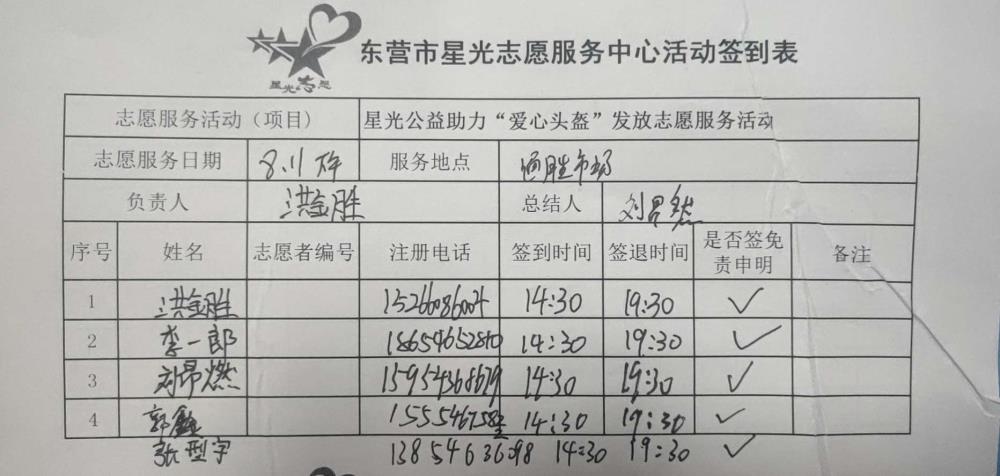 星光志愿
东营市星光志愿服务中心活动签到表
志愿服务活动（项目） 星光公益助力“爱心头盔”发放志愿服务活动
志愿服务日期 8.11 服务地点 市场
负责人 洪金胜 总结人 刘昂燃
序号 姓名 志愿者编号 注册电话 签到时间 签退时间 是否签免责申明 备注
1 洪金胜 15266086004 14:30 19:30 ✓
2 李一郎 18654652810 14:30 19:30 ✓
3 刘昂燃 15954368679 14:30 19:30 ✓
4 郭 14:30 19:30 ✓
张型宇 14:30 19:30 ✓